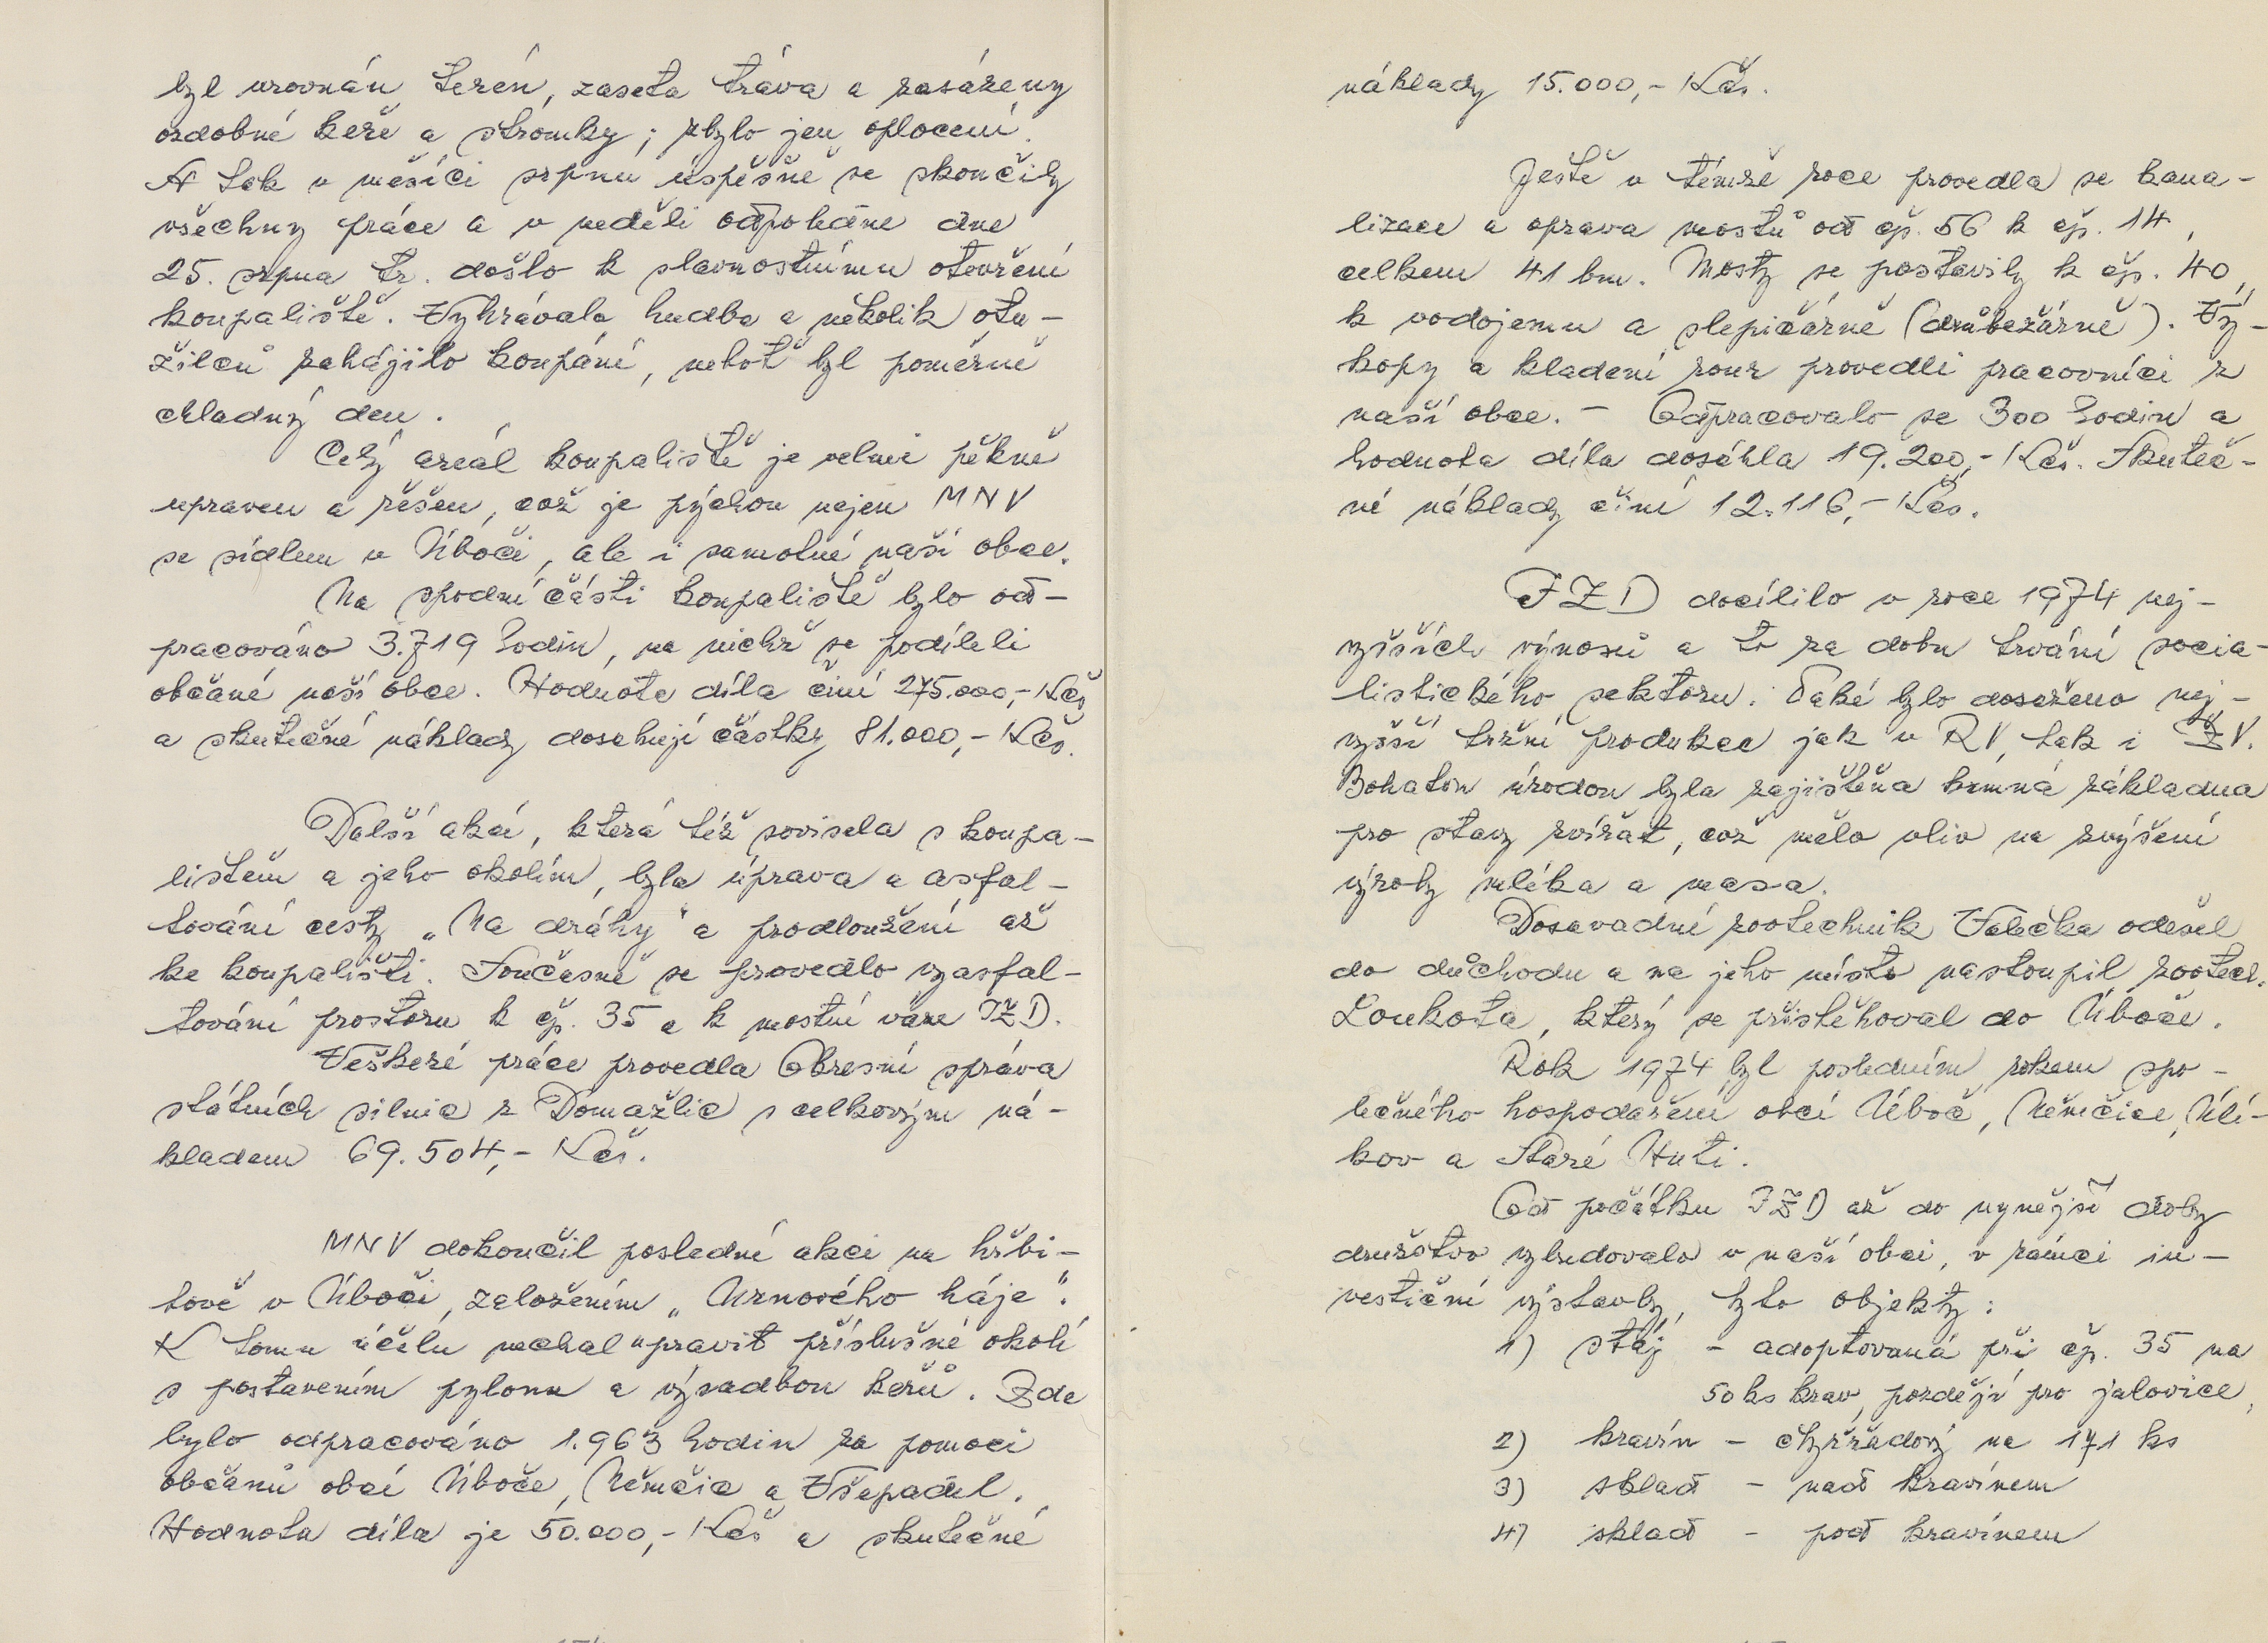 byl urovnán terén, zaseta tráva a zasázeny
ozdobné keře a stromky; zbylo jen oplocení.
A tak v měsíci srpnu úspěšně se skončily
všechny práce a v neděli odpoledne dne
25. srpna tr. došlo k slavnostnímu otevření
koupaliště. Vyhrávala hudba a několik otu-
žilců zahájilo koupání, neboť byl poměrně
chladný den.
Celý areál koupaliště je velmi pěkně
upraven a řešen, což je pýchou nejen MNV
se sídlem v Úboči, ale i samotné naší obce.
Na spodní části koupaliště bylo od-
pracováno 3.719 hodin, na nichž se podíleli
občané naší obce. Hodnota díla činí 275.000,- Kčs
a skutečné náklady dosahují částky 81.000,- Kčs.
Další akcí, která též souvisela s koupa-
lištěm a jeho okolím, byla úprava a asfal-
tování cesty „Na dráhy" a prodloužení až
ke koupališti. Současně se provedlo vyasfal-
tování prostoru k čp. 35 a k mostní váze JZD.
Veškeré práce provedla Okresní správa
státních silnic z Domažlic s celkovým ná-
kladem 69.504,- Kčs.
MNV dokončil poslední akci na hřbi-
tově v Úboči, založením „Urnového háje".
K tomu účelu nechal upravit příslušné okolí
s postavením pylonu a výsadbou keřů. Zde
bylo odpracováno 1.963 hodin za pomoci
občanů obcí Úboče, Němčic a Všepadel.
Hodnota díla je 50.000,- Kčs a skutečné
náklady 15.000,- Kčs.
Ještě v témže roce provedla se kana-
lizace a oprava mostů od čp. 56 k čp. 14,
celkem 41 bm. Mosty se postavily k čp. 40,
k vodojemu a slepičárně (drůbežárně). Vý-
kopy a kladení rour provedli pracovníci z
naší obce. - Odpracovalo se 300 hodin a
hodnota díla dosáhla 19.200,- Kčs. Skuteč-
né náklady činí 12.116,- Kčs.
JZD docílilo v roce 1974 nej-
vyšších výnosů a to za dobu trvání socia-
listického sektoru. Také bylo dosaženo nej-
vyšší tržní produkce jak v RV, tak i ŽV.
Bohatou úrodou byla zajištěna krmná základna
pro stavy zvířat, což mělo vliv na zvýšení
výroby mléka a masa.
Dosavadní zootechnik Valečka odešel
do důchodu a na jeho místo nastoupil zootech.
Loukota, který se přistěhoval do Úboče.
Rok 1974 byl posledním rokem spo-
lečného hospodaření obcí Úboč, Němčice, Úlí-
kov a Staré Huti.
Od počátku JZD až do nynější doby
družstvo vybudovalo v naší obci, v rámci in-
vestiční výstavby, tyto objekty:
1) stáj - adoptovaná při čp. 35 na
50 ks krav, později pro jalovice,
2) kravín - čtyřřadový na 171 ks
3) sklad - nad kravínem
4) sklad - pod kravínem